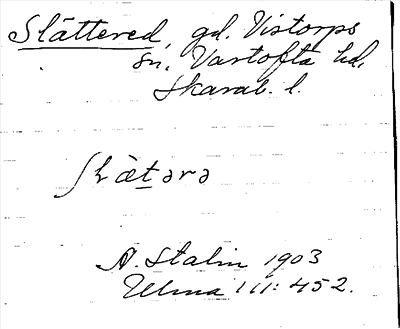 Slättered, gd. Vistorps
sn. Vartofta hd.
Skarab. l.
A. Stalin 1903
Ulma 111: 452.